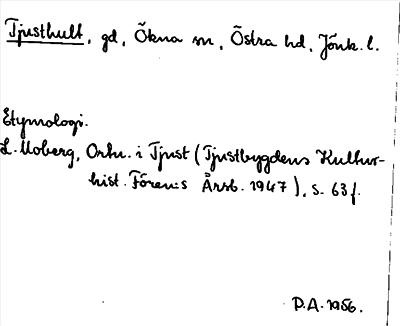 Tjusthult, gd, Ökna sn, Östra hd, Jönk. l.
Etymologi.
L. Moberg, Ortn. i Tjust (Tjustbygdens Kultur-
hist. Förenis Årsb. 1947), s. 63 f.
P.A. 1956.